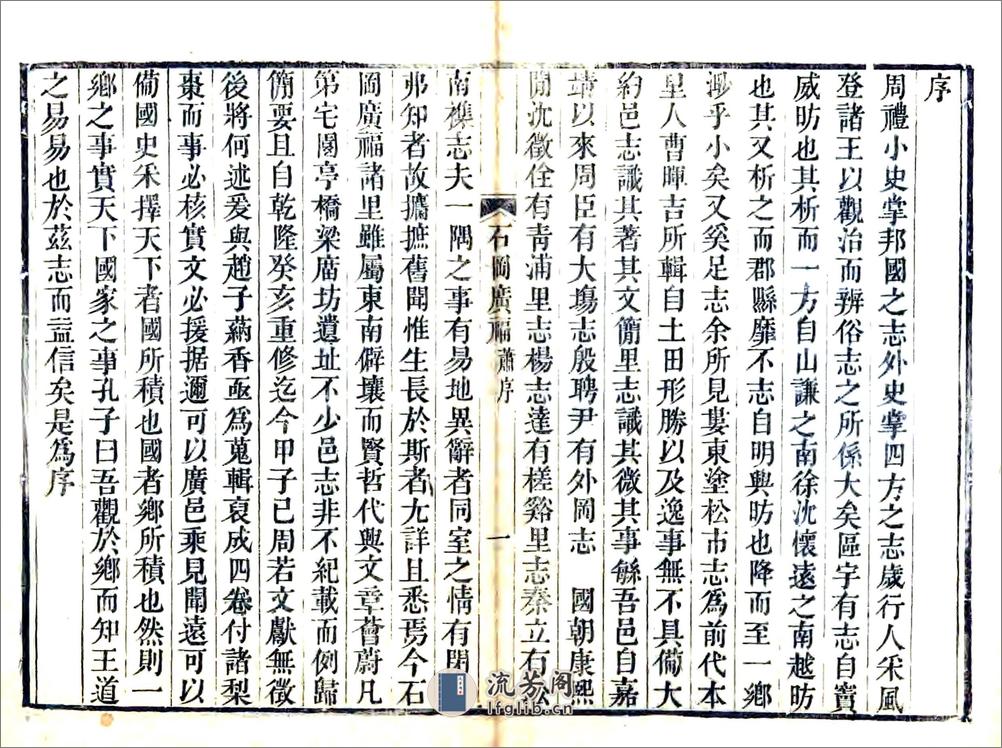 序
周禮小史掌邦國之志外史掌四方之志歲行人采風
登諸王以觀治而辨俗志之所係大矣區宇有志自竇
威昉也其析而一方自山謙之南徐沈懷遠之南越昉
也其又析之而郡縣靡不志自明興昉也降而至一鄉
渺乎小矣又奚足志余所見婁東塗松市志為前代本
里人曹暉吉所輯自土田形勝以及逸事無不具備大
約邑志識其著其文簡里志識其微其事緐吾邑自嘉
靖以來周臣有大塲志殷聘尹有外岡志 國朝康熙
間沈徵佺有青浦里志楊志達有槎谿里志秦立石公
南樵志夫一隅之事有易地異辭者同室之情有閉
弗知者故攟摭舊聞惟生長於斯者尤詳且悉焉今石
岡廣福諸里雖屬東南僻壤而賢哲代興文章薈蔚凡
第宅園亭橋梁廣坊遺址不少邑志非不紀載而例歸
簡要且自乾隆癸亥重修迄今甲子已周若文獻無徵
後將何述爰與趙子蒳香亟為蒐輯裒成四卷付諸梨
棗而事必核實文必援据邇可以廣邑乘見聞遠可以
備國史采擇天下者國所積也國者鄉所積也然則一
鄉之事實天下國家之事孔子曰吾觀於鄉而知王道
之易易也於茲志而益信矣是為序
石岡廣福 蕭序 一
流芳阁
lfglib.cn